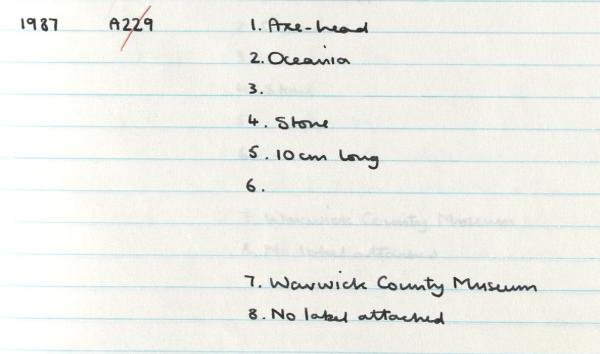 1987 A229 1. Axe-head
2. Oceania
3.
4. Stone
5. 10cm long
6.
7. Warwick County Museum
8. No label attached